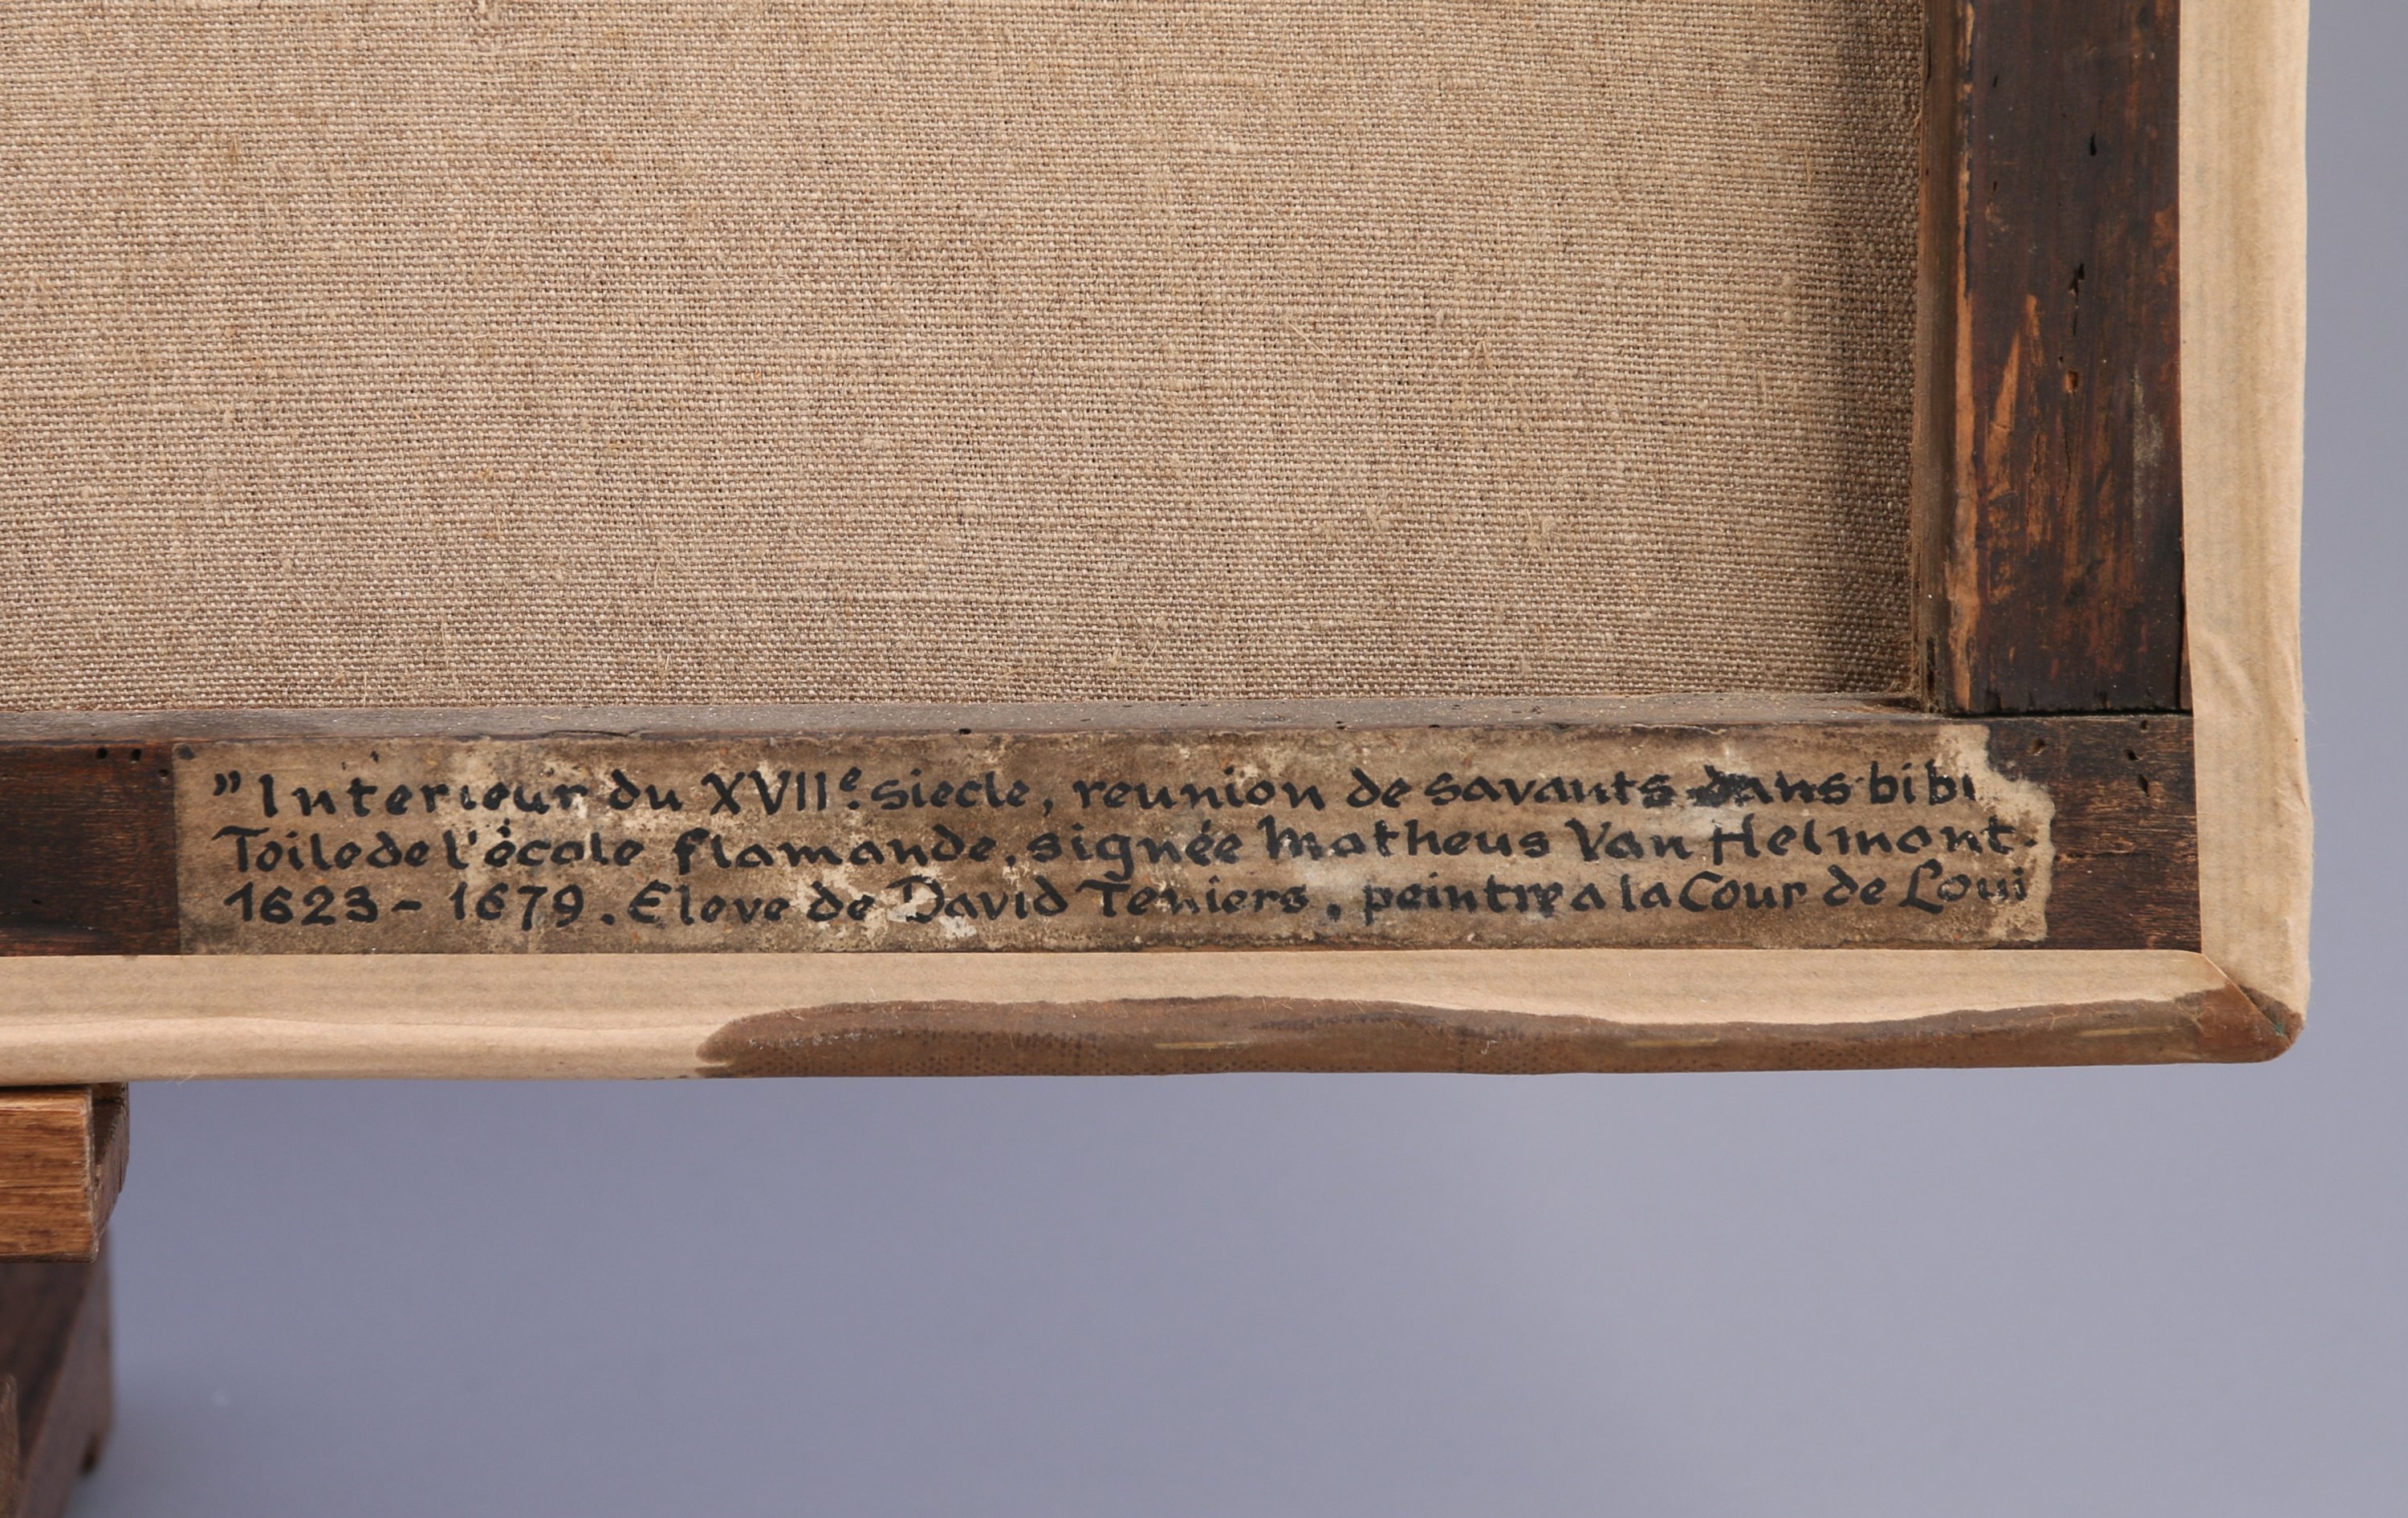 ”Interieur du XVIIe siecle, reunion de savants dans bibi
Toile de l'école flamande, signée Matheus Van Helmont.
1623 - 1679. Eleve de David Teniers, peintre a la Cour de Loui